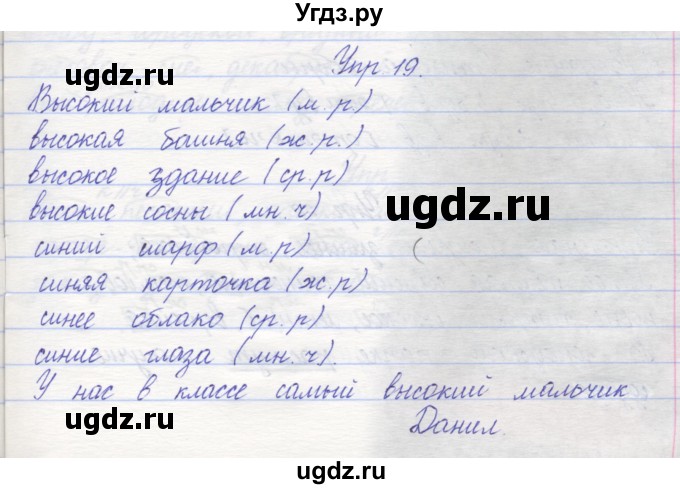 Угдз.ру
Упр 19.
Высокий мальчик (м.р)
высокая башня (ж.р.)
высокое здание (ср.р)
высокие сосны (мн.ч)
синий шарф (м.р)
синяя карточка (ж.р)
синее облако (ср.р)
синие глаза (мн.ч).
У нас в классе самый высокий мальчик
Данил.
ugdz.ru
ugdz.ru
ugdz.ru
ugdz.ru
ugdz.ru
ugdz.ru
ugdz.ru